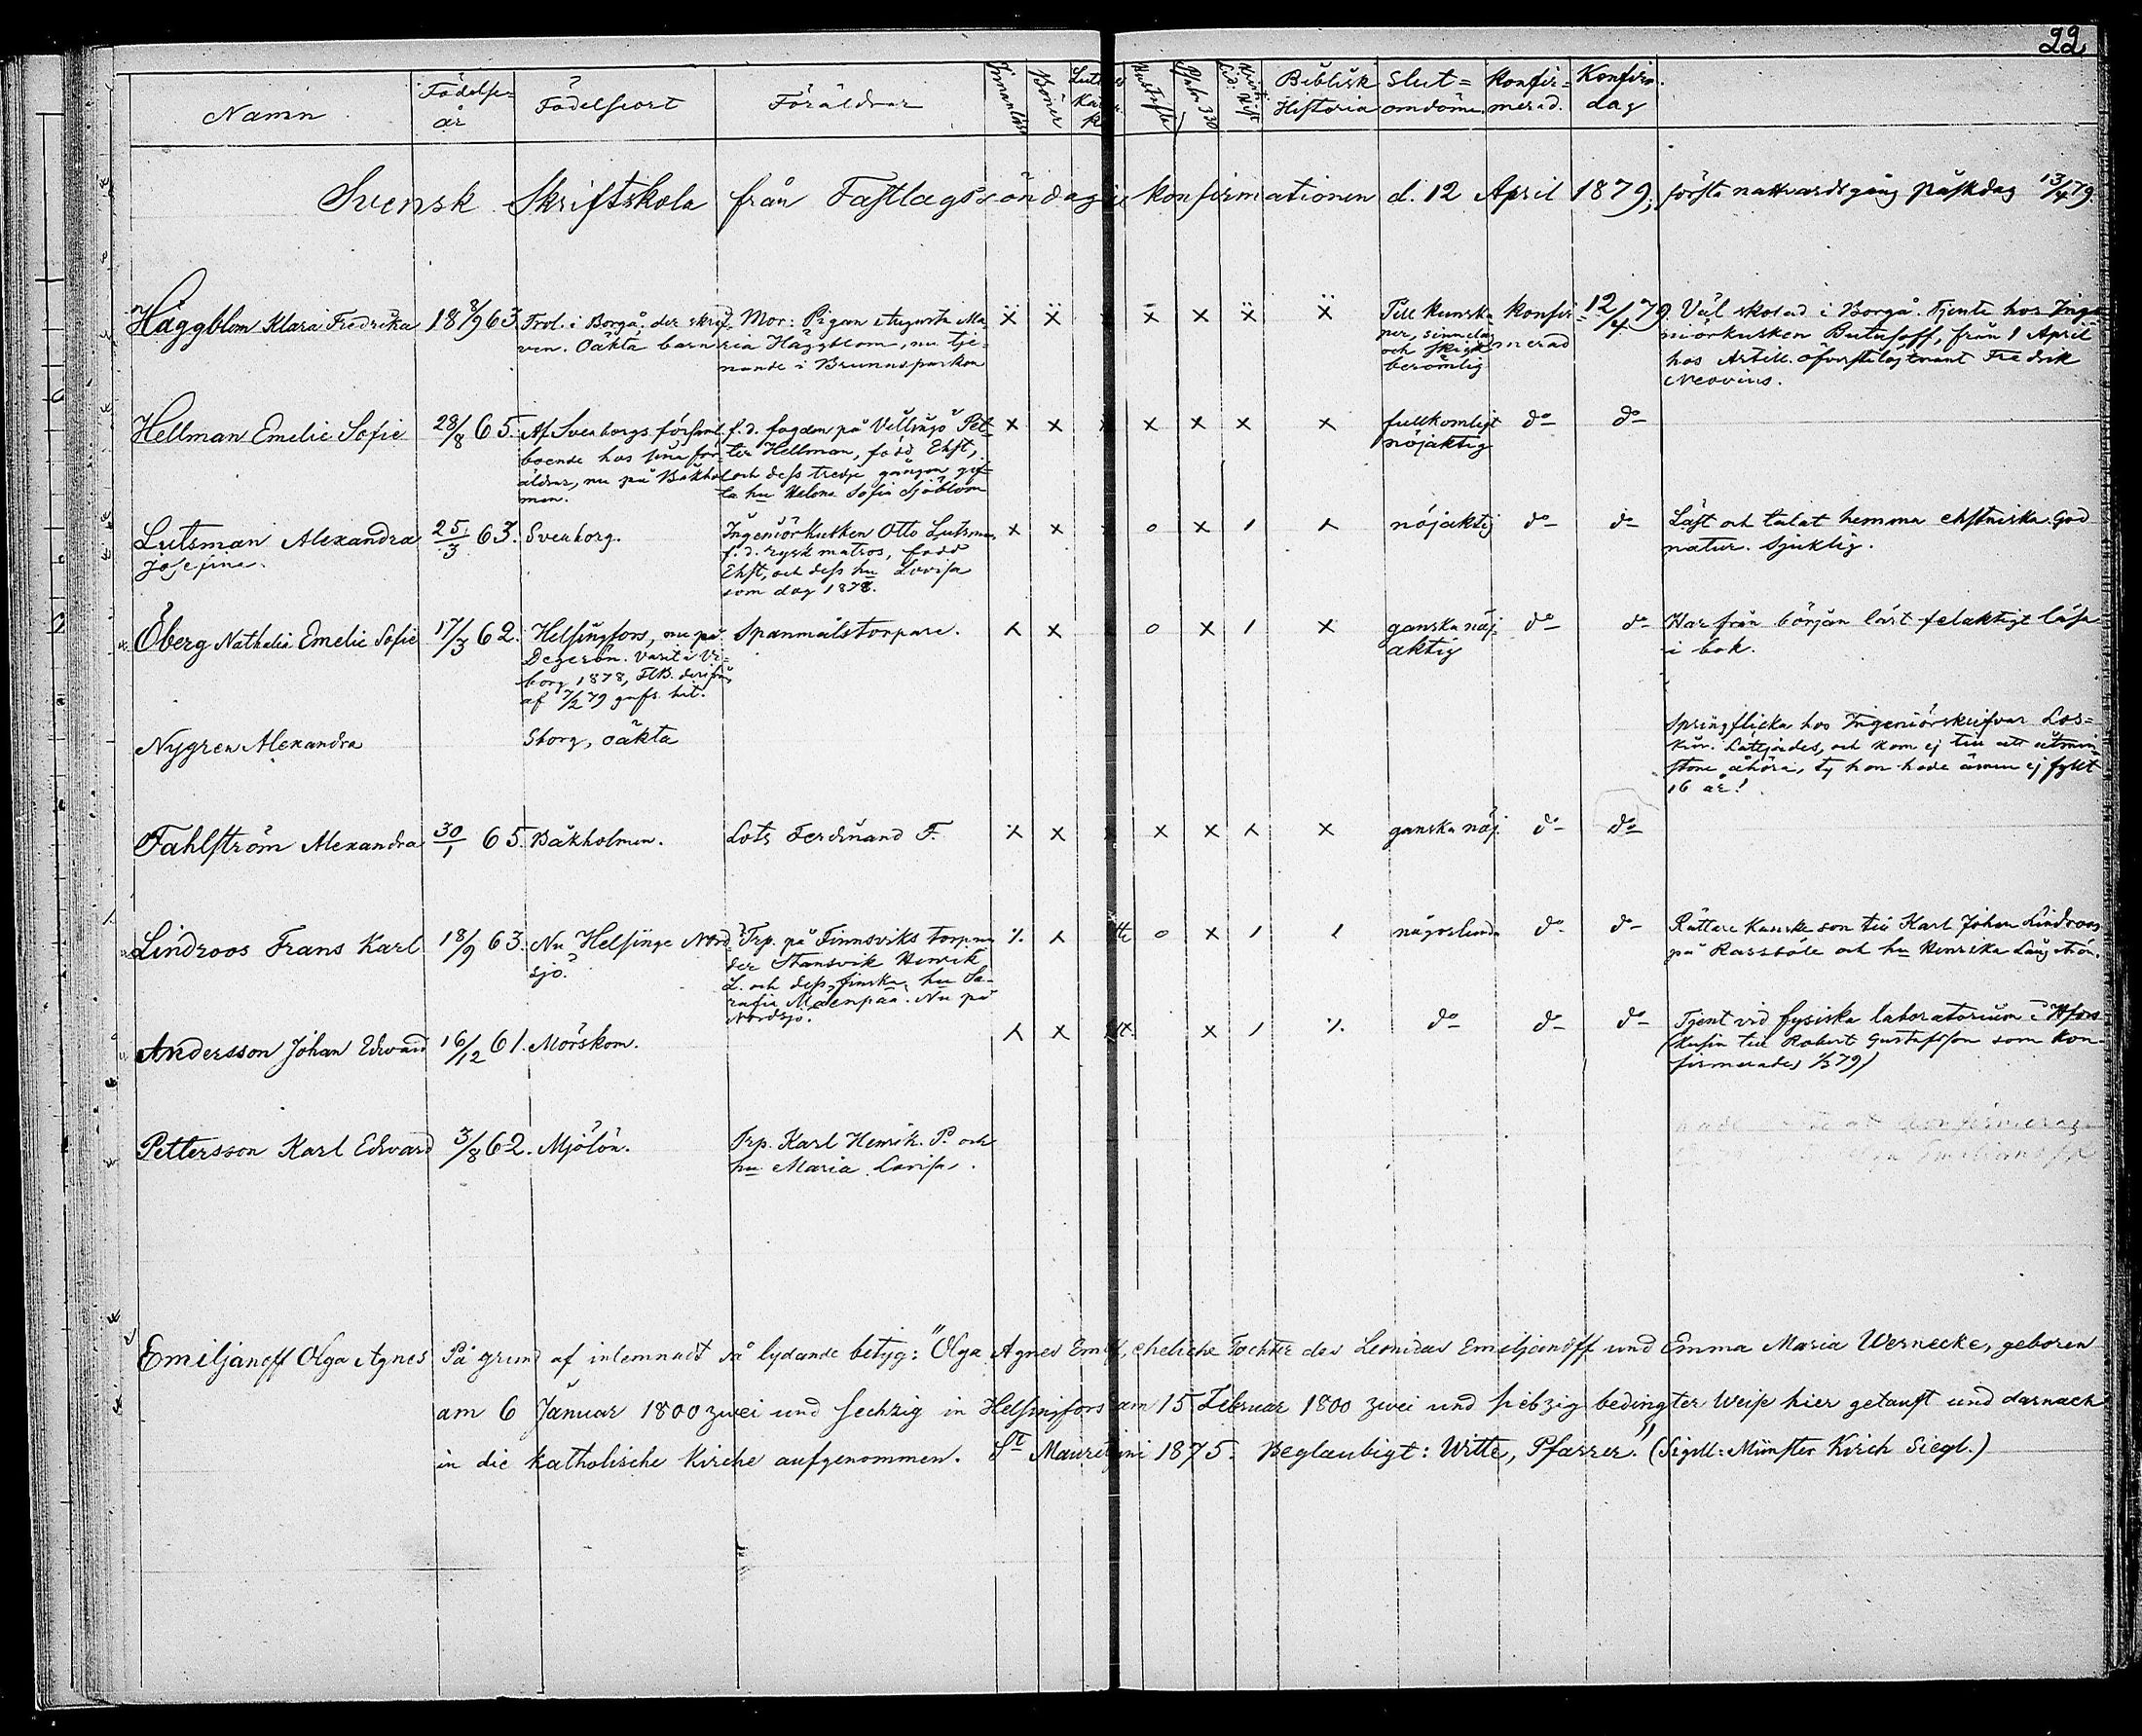 22
Namn Födelse- Födelseort Föräldrar Innanläsn. Böner Hustafla Biblisk Slut- Konfir- Konfirm.
år Historia omdöme. merad. dag
Svensk Skriftskola från Fastlagssöndag konfirmationen d. 12 April 1879; första nattvardsgång påskdag 13/4 79.
Häggblom Klara Fredrika
18 8/9 63.
Trol. i Borgå, der skrif-
ven. Oäkta barn
Mor: Pigan Augusta Ma-
ria Häggblom, nu tje-
nande i Brunnsparken
Till kunska-
per, sinnelag
och skick
berömlig
konfir-
merad
12/4 79
Väl skolad i Borgå. Tjente hos Inge-
niörkusken, från 1 April
hos Artill. öfverstelöjtnant Fredrik
Neovius.
Hellman Emelie Sofie
28/8 65.
Af Sveaborgs församl.
boende hos sina för-
äldrar, nu på Båkhol-
men.
f. d. fogden på Villingö Pet-
ter Hellman, född Ehst,
och dess tredje gången gif-
ta hu Helena Sofia Sjöblom
fullkomligt
nöjaktig
do
do
Lutsman Alexandra
Josefina.
25/3 63.
Sveaborg.
Ingeniörkusken Otto Lutsman,
f. d. rysk matros, född
Ehst, och dess hu Lovisa
som dog 1878.
o
nöjaktig
do
do
Läst och talat hemma ehstniska. God
natur. Sjuklig.
Öberg Nathalia Emelie Sofie
17/3 62.
Helsingfors, nu på
Degerön. Varit i Vi-
borg 1878, FlB. derifrån
af 7/2 79 gafs hit.
Spanmålstorpare.
o
ganska nöj-
aktig
do
do
Har från början lärt felaktigt läsa
i bok.
Nygren Alexandra
Sborg, oäkta
Springflicka hos
och kom ej till att åtmin-
stone åhöra, ty hon hade ännu ej fyllt
16 år!
Fahlström Alexandra
30/1 65.
Båkholmen.
Lots Ferdinand F.
ganska nöj.
do
do
Lindroos Frans Karl
18/9 63.
Nu Helsinge Nord-
sjö.
Trp. på Finnsviks torp un-
der Stansvik Henrik
L. och dess finska hu Se-
rafia Mäenpää. Nu på
Nordsjö.
o
någorlunda
do
do
Rättare kanske son till Karl Johan Lindroos
på Rastböle och hu Henrika Långström.
Andersson Johan Edvard
16/12 61.
Mörskom.
do
do
do
Tjent vid fysiska laboratorium i Hfors
(Kusin till Robert Gustafsson som kon-
firmerades 1/3 79)
Pettersson Karl Edvard
3/8 62.
Mjölön.
Trp. Karl Henrik P. och
hu Maria Lovisa.
konfirmeras
Emeljanoff Olga Agnes På grund af inlemnadt så lydande betyg: "Olga Agnes Emil, eheliche Tochter des Leonidas Emeljanoff und Emma Maria Wernecke, geboren
am 6 Januar 1800 zwei und sechzig in Helsingfors am 15 Februar 1800 zwei und siebzig bedingter Weise hier getauft und darnach
in die katholische Kirche aufgenommen. St Mauritz 1875. Beglaubigt: Witte, Pfarrer." (Sigill: Münster Kirch Siegl.)